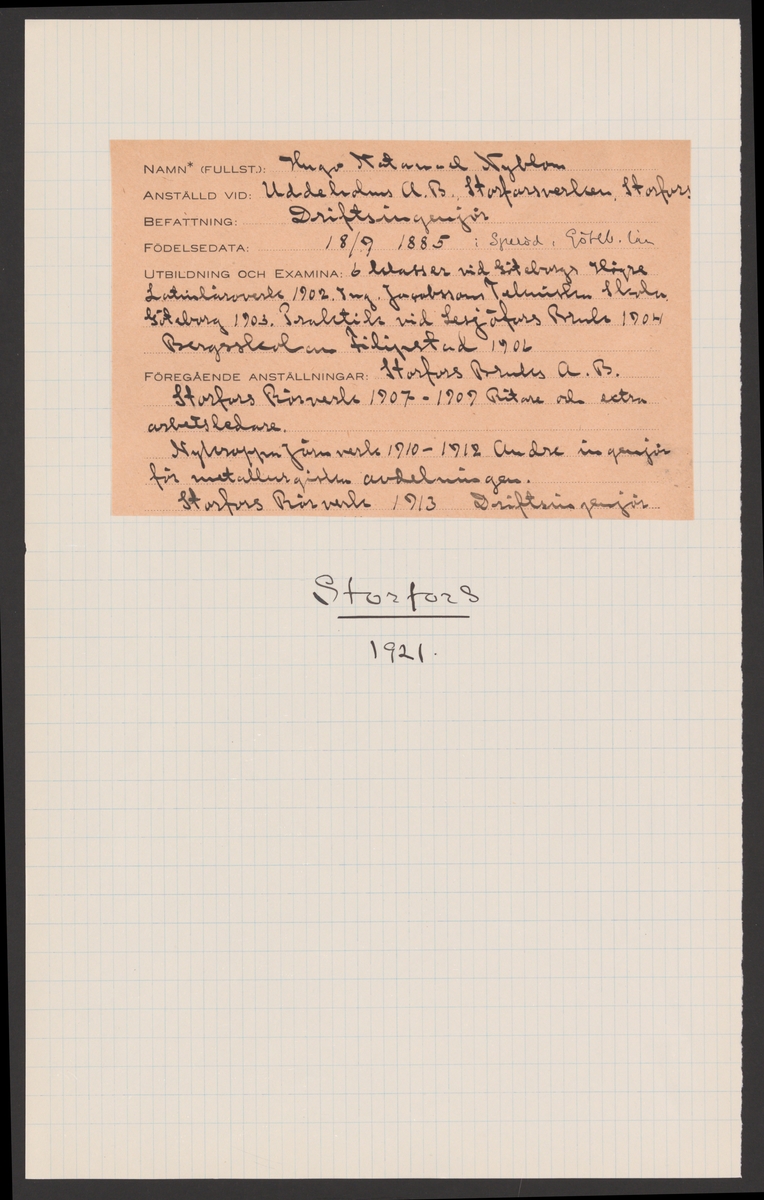 NAMN* (FULLST.): Hugo Natanael Nyblom
ANSTÄLLD VID: Uddeholms A.B., Storforsverken, Storfors
BEFATTNING: Driftsingenjör
FÖDELSEDATA: 18/9 1885 i Göteb. län
UTBILDNING OCH EXAMINA: 6 klasser vid Göteborgs Högre
Latinläroverk 1902. Ing. Jacobssons Tekniska Skola
Göteborg 1903. Praktik vid Lesjöfors Bruk 1904
Bergsskolan Filipstad 1906
FÖREGÅENDE ANSTÄLLNINGAR: Storfors Bruks A.B.
Storfors Rörverk 1907-1909 Ritare och extra
arbetsledare.
Nykroppa Järnverk 1910-1912 Andre ingenjör
för metallurgiska avdelningen.
Storfors Rörverk 1913 Driftsingenjör
Storfors
1921.